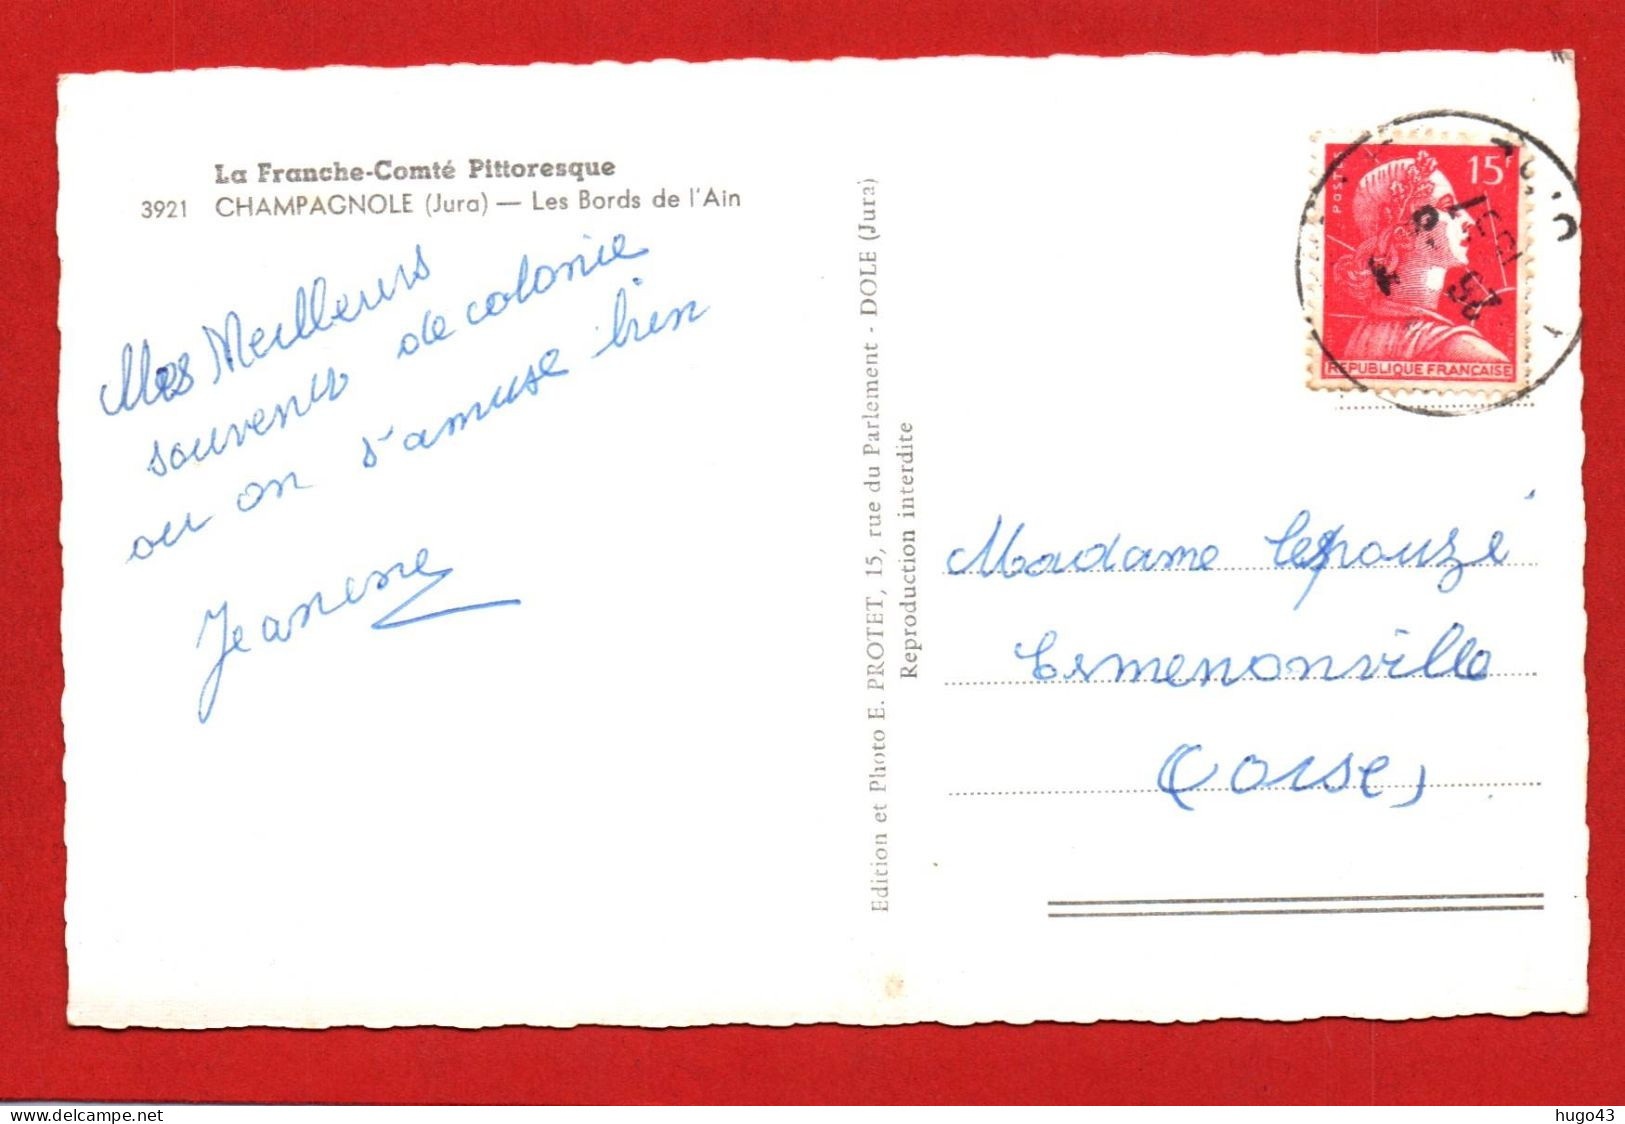 La Franche-Comté Pittoresque
3921 CHAMPAGNOLE (Jura) — Les Bords de l'Ain
Mes Meilleurs
souvenirs de colonie
ou on s'amuse bien
Jeanene
Edition et Photo E. PROTET, 15, rue du Parlement - DOLE (Jura)
Reproduction interdite
POSTES
15F
REPUBLIQUE FRANÇAISE
25
Madame Lepouzé
Ermenonville
Oise
delcampe.net
hugo43